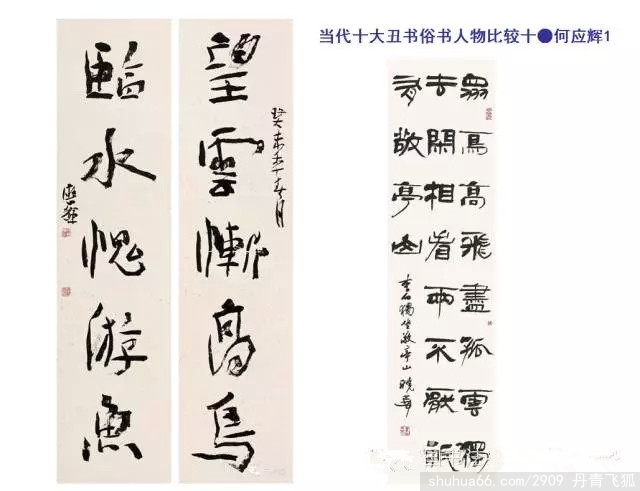 当代十大丑书俗书人物比较十●何应辉1
望雲慚高鳥
臨水愧游魚
應輝
眾鳥高飛盡孤雲獨
去閑相看兩不厭祇
有敬亭山
李白獨坐敬亭山
shuhua66.com/2909 丹青飞狐